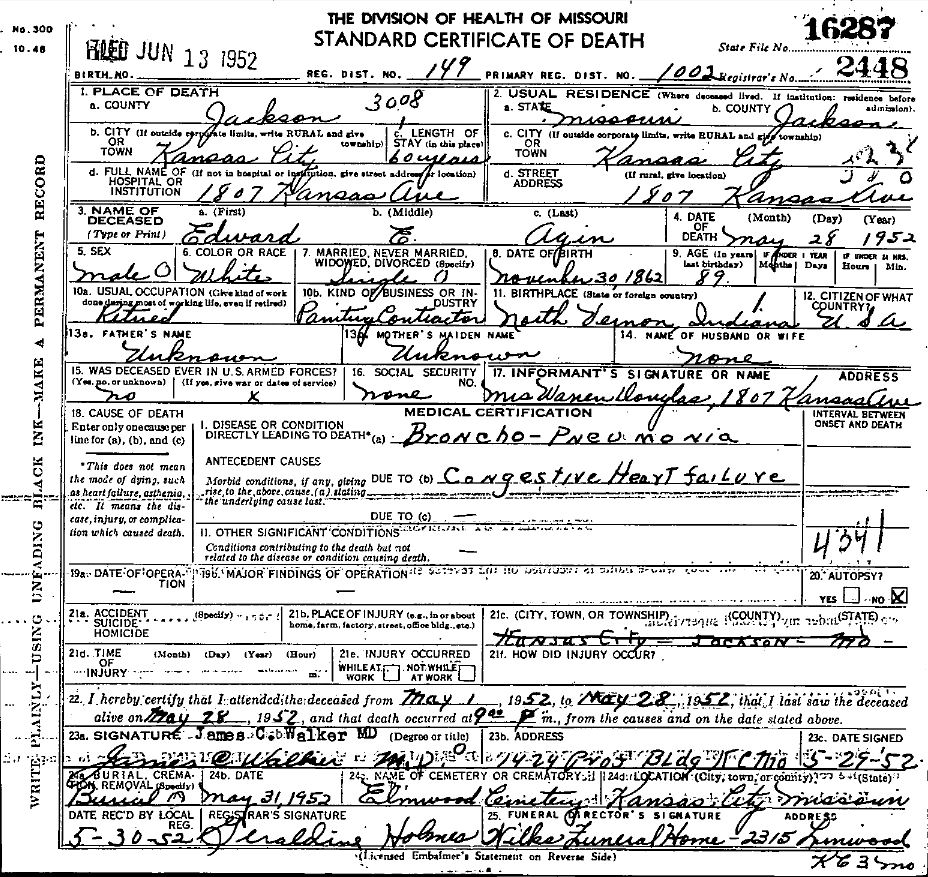 THE DIVISION OF HEALTH OF MISSOURI
STANDARD CERTIFICATE OF DEATH
No. 300
10-48
FILED JUN 13 1952
State File No. 16287
BIRTH NO. REG. DIST. NO. 149 PRIMARY REG. DIST. NO. 1002 Registrar's No. 2448
1. PLACE OF DEATH
a. COUNTY Jackson 3008
2. USUAL RESIDENCE (Where deceased lived. If institution: residence before admission).
a. STATE Missouri b. COUNTY Jackson
b. CITY (If outside corporate limits, write RURAL and give township) OR TOWN Kansas City
c. LENGTH OF STAY (in this place) 60 years
c. CITY (If outside corporate limits, write RURAL and give township) OR TOWN Kansas City
d. FULL NAME OF (If not in hospital or institution, give street address or location) HOSPITAL OR INSTITUTION 1807 Kansas Ave
d. STREET ADDRESS (If rural, give location) 1807 Kansas Ave
3. NAME OF DECEASED (Type or Print) a. (First) Edward b. (Middle) E. c. (Last) Agin
4. DATE OF DEATH (Month) (Day) (Year) May 28 1952
5. SEX Male 0
6. COLOR OR RACE White
7. MARRIED, NEVER MARRIED, WIDOWED, DIVORCED (Specify) Single 0
8. DATE OF BIRTH November 30, 1862
9. AGE (In years last birthday) 89 IF UNDER 1 YEAR Months Days IF UNDER 24 HRS. Hours Min.
10a. USUAL OCCUPATION (Give kind of work done during most of working life, even if retired) Retired
10b. KIND OF BUSINESS OR INDUSTRY Contractor
11. BIRTHPLACE (State or foreign country) North Vernon, Indiana
12. CITIZEN OF WHAT COUNTRY? USA
13a. FATHER'S NAME Unknown
13b. MOTHER'S MAIDEN NAME Unknown
14. NAME OF HUSBAND OR WIFE None
15. WAS DECEASED EVER IN U.S. ARMED FORCES? (Yes, no, or unknown) (If yes, give war or dates of service) no x
16. SOCIAL SECURITY NO. none
17. INFORMANT'S SIGNATURE OR NAME ADDRESS
Mrs Warren Douglas, 1807 Kansas Ave
18. CAUSE OF DEATH
Enter only one cause per line for (a), (b), and (c)
*This does not mean the mode of dying, such as heart failure, asthenia, etc. It means the disease, injury, or complication which caused death.
MEDICAL CERTIFICATION
INTERVAL BETWEEN ONSET AND DEATH
I. DISEASE OR CONDITION DIRECTLY LEADING TO DEATH* (a) Broncho-Pneumonia
ANTECEDENT CAUSES
Morbid conditions, if any, giving rise to the above cause (a) stating the underlying cause last.
DUE TO (b) Congestive Heart failure
DUE TO (c) —
II. OTHER SIGNIFICANT CONDITIONS
Conditions contributing to the death but not related to the disease or condition causing death. —
4341
19a. DATE OF OPERATION —
19b. MAJOR FINDINGS OF OPERATION —
20. AUTOPSY?
YES NO X
21a. ACCIDENT SUICIDE HOMICIDE (Specify)
21b. PLACE OF INJURY (e.g., in or about home, farm, factory, street, office bldg., etc.)
21c. (CITY, TOWN, OR TOWNSHIP) (COUNTY) (STATE)
Kansas City - Jackson - Mo -
21d. TIME OF INJURY (Month) (Day) (Year) (Hour) m.
21e. INJURY OCCURRED
WHILE AT WORK NOT WHILE AT WORK
21f. HOW DID INJURY OCCUR?
22. I hereby certify that I attended the deceased from May 1, 1952, to May 28, 1952, that I last saw the deceased
alive on May 28, 1952, and that death occurred at 9:00 P m., from the causes and on the date stated above.
23a. SIGNATURE James C. Walker MD (Degree or title)
James C Walker M.D.
23b. ADDRESS 1424 Prof Bldg KC Mo
23c. DATE SIGNED 5-29-52
24a. BURIAL, CREMATION, REMOVAL (Specify) Burial
24b. DATE May 31, 1952
24c. NAME OF CEMETERY OR CREMATORY Elmwood Cemetery
24d. LOCATION (City, town, or county) (State) Kansas City Missouri
DATE REC'D BY LOCAL REG. 5-30-52
REGISTRAR'S SIGNATURE Geraldine Holmes
25. FUNERAL DIRECTOR'S SIGNATURE ADDRESS
Wilks Funeral Home - 2315 Linwood
KC 3 Mo
(Licensed Embalmer's Statement on Reverse Side)
WRITE PLAINLY—USING UNFADING BLACK INK—MAKE A PERMANENT RECORD